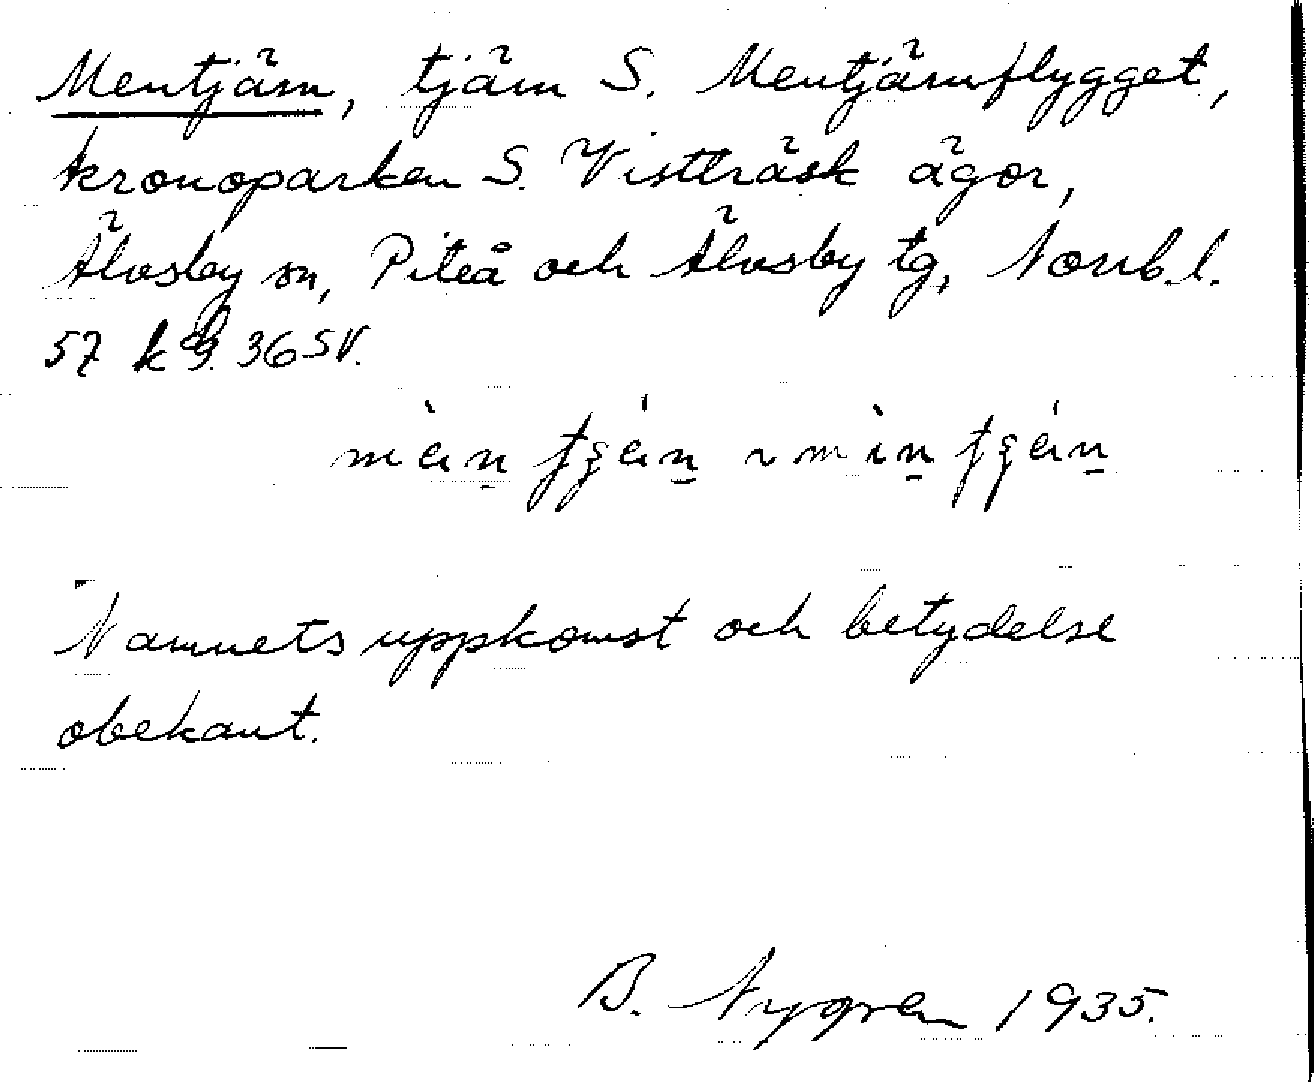 Mentjärn, tjärn S. Mentjärnflygget,
kronoparken S. Vistträsk ägor,
Älvsby sn, Piteå och Älvsby tg, Norrb.l.
57 k 36 SV.
Namnets uppkomst och betydelse
obekant.
B. Nygren 1935.